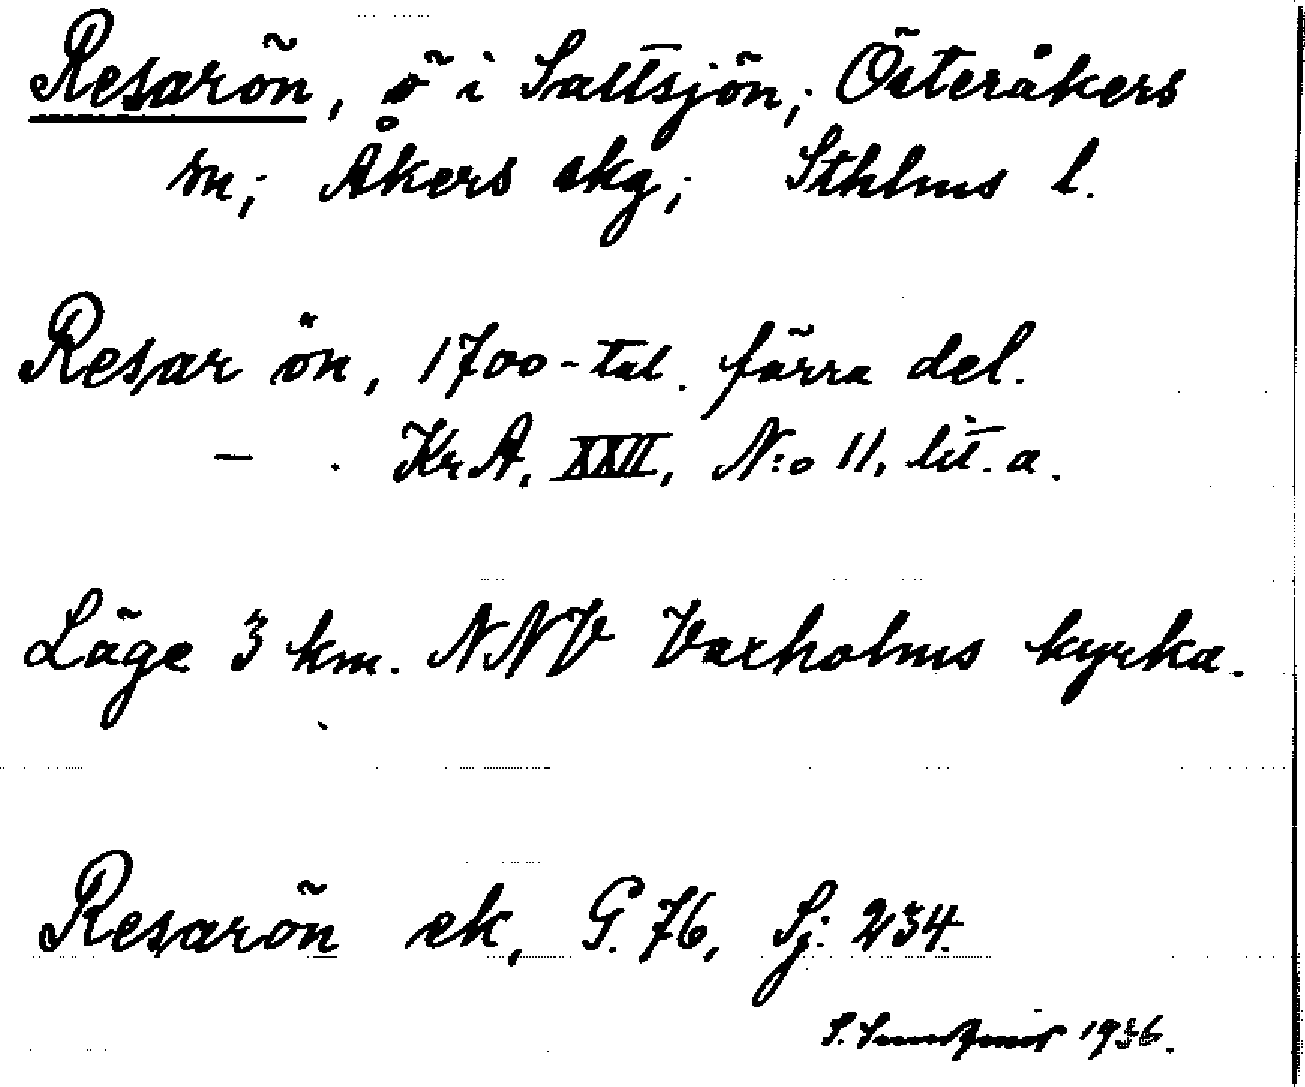 Resarön, ö i Saltsjön; Österåkers
sn; Åkers skg; Sthlms l.
Resar ön, 1700-tal. förra del.
— . KrA, XXII, N:o 11, lit. a.
Läge 3 km. NNV Vaxholms kyrka.
Resarön ek, G. 76, Sj. 234.
S. 1936.